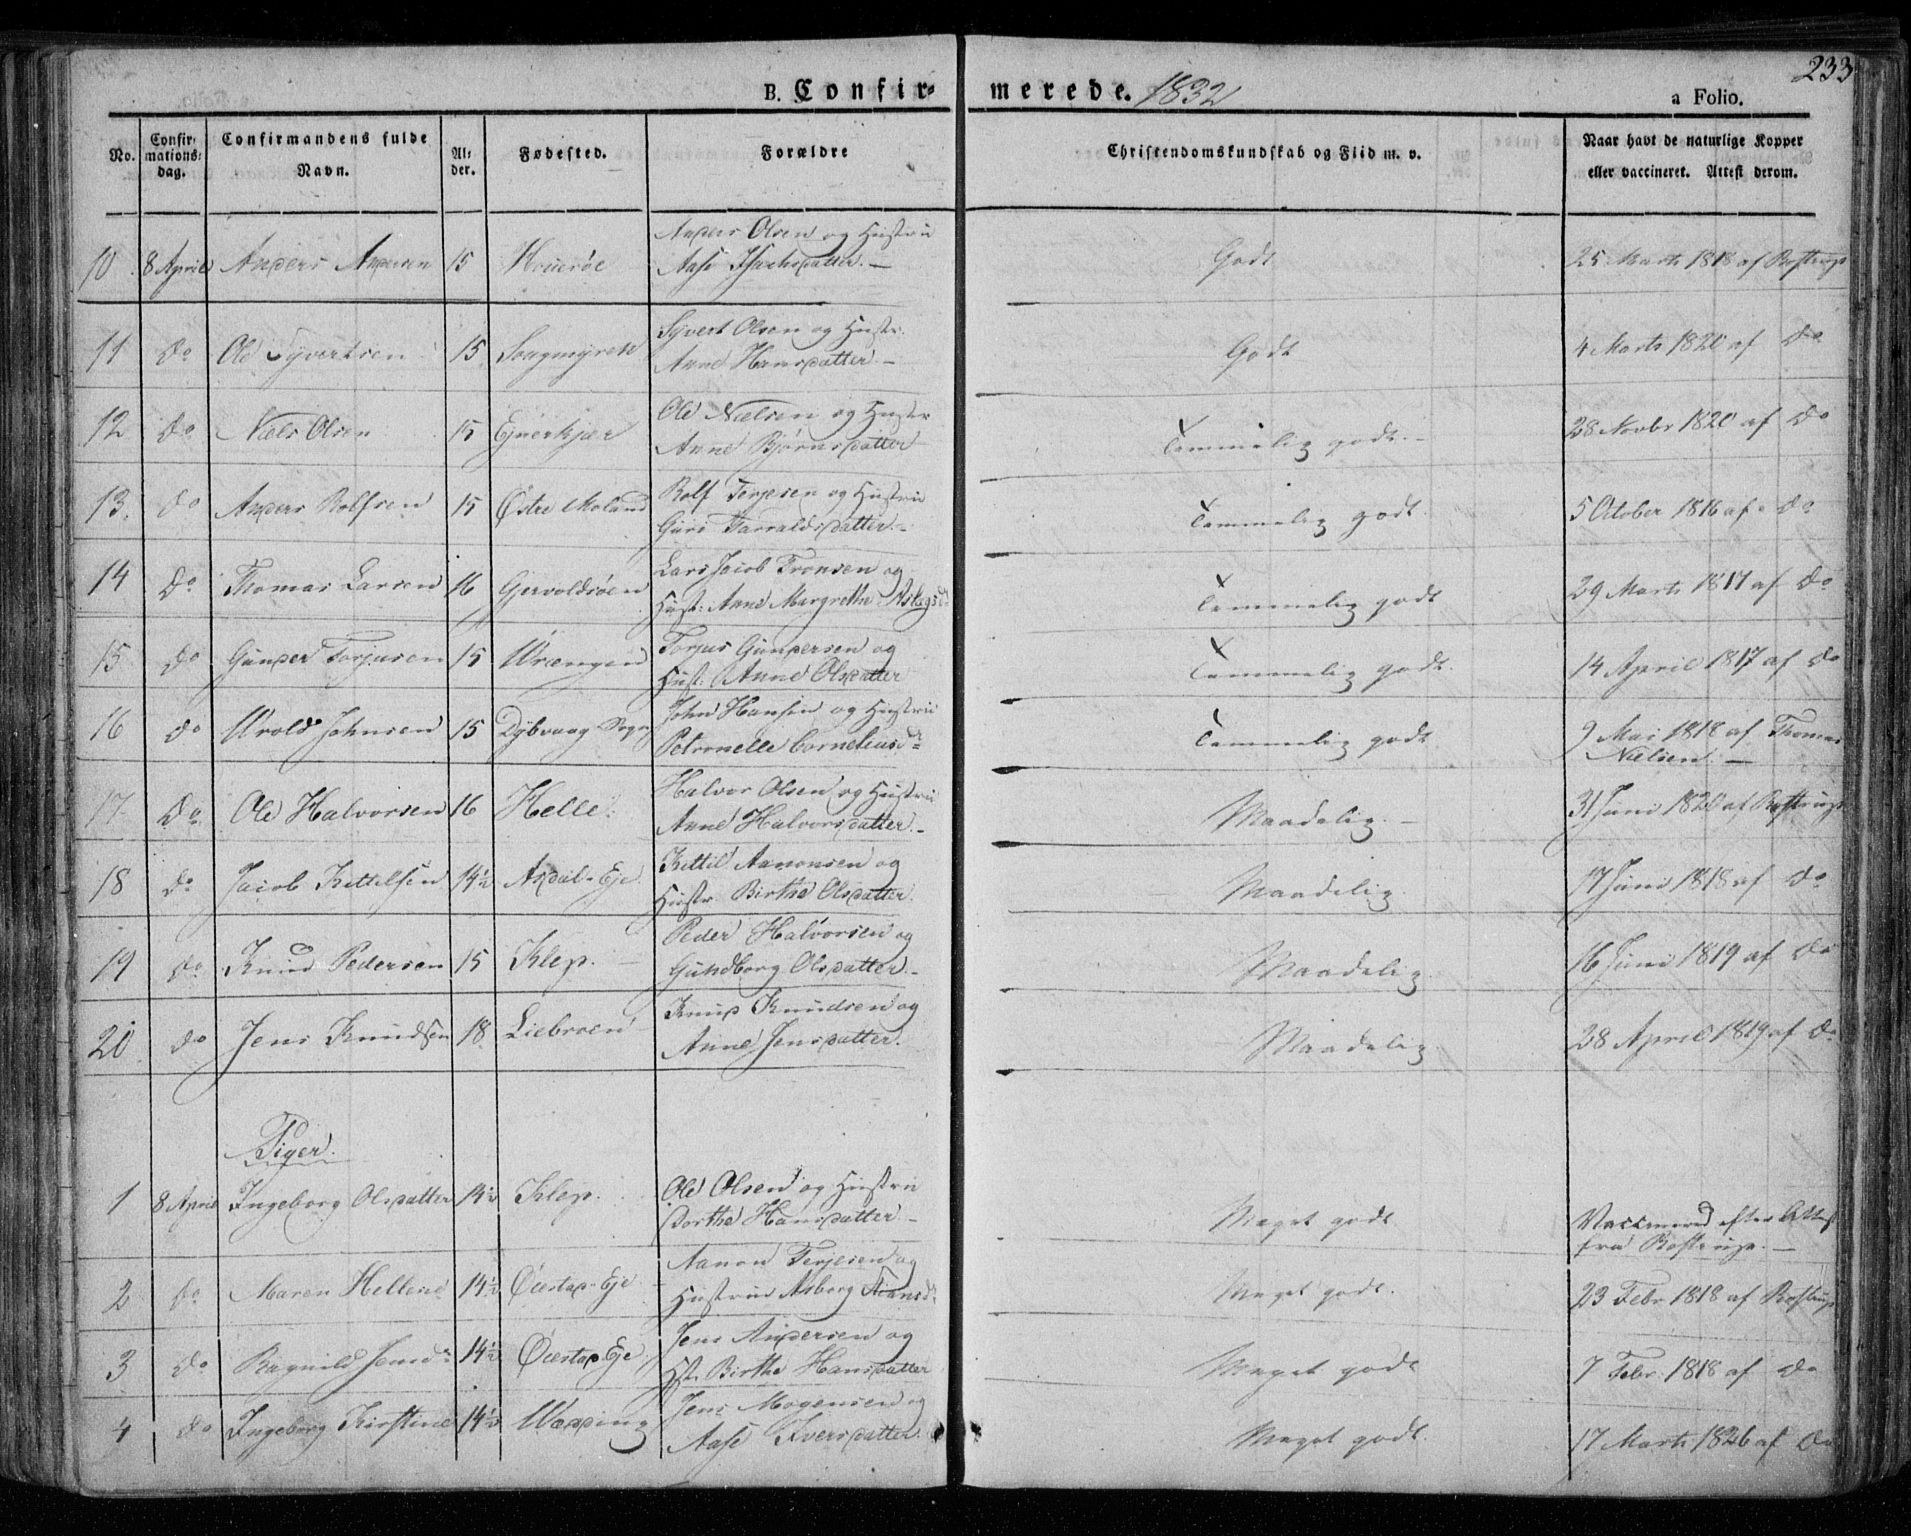 233
B. Confir= merede. 1832 a Folio.
No. Confir= mations= dag. Confirmandens fulde Navn. Al= der. Fødested. Forældre Christendomskundskab og Fliid m. v. Naar havt de naturlige Kopper eller vaccineret. Attest derom.
10 8 April Anders Andersen 15 Anders Olsen og Hustrue
Aase Isachsdatter.— Godt 25 Marts 1818 af Rostrup
11 do Ole Syvertsen 15 Songmyrene Syvert Olsen og Hustr.
Anne Hansdatter.— Godt 4 Marts 1820 af do
12 do Niels Olsen 15 Ejnerkjær Ole Nielsen og Hustr
Anne Bjørnsdatter Temmelig godt.— 28 Novbr 1820 af do
13. do Anders Rolfsen 15 Østre Moland Rolf Terjesen og Hustrue
Guri Tarraldsdatter.— Temmelig godt. 5 October 1816 af do
14 do Thomas Larsen 16 Gjervoldsøen Lars Jacob Tronsen og
Hust: Anne Margrethe Aslagsd Temmelig godt 29 Marts 1817 af do
15 do Gunder Torjusen 15 Wrængen Torjus Gundersen og
Hust: Anne Olsdatter Temmelig godt. 14 April 1817 af do
16 do Wrold Johnsen 15 Dybvaag Sogn John Hansen og Hustrue
Petronelle Corneliusdr Temmelig godt 9 Mai 1818 af Thomas
Nielsen.—
17 do Ole Halvorsen 16 Helle. Halvor Olsen og Hustrue
Anne Halvorsdatter.— Maadelig.— 31 Juni 1820 af Rostrup
18 do Jacob Kittelsen 14½ Asdal-Eje Kittil Aanonsen og
Hustr. Birthe Olsdatter. Maadelig. 17 Juni 1818 af do
19 do Knud Pedersen 15 Klep.— Peder Halvorsen og
Gundborg Olsdatter.— Maadelig. 16 Juni 1819 af do
20 do Jens Knudsen 18 Liebroen Knud Knudsen og
Anne Jensdatter. Maadelig. 28 April 1819 af do
Piger.
1 8 April Ingeborg Olsdatter 14½ Klep. Ole Olsen og Hustrue
Dorthe Hansdatter.— Meget godt Vaccineret efter Attest
fra Rostrup.—
2 do Maren Hellene 14½ Øiestad-Eje Aanon Terjesen og
Hustrue Asborg Meget godt. 23 Febr 1818 af Rostrup
3 do Ragnild Jensdr 14½ Øiestad Eje Jens Andersen og
Hst. Birthe Hansdatter Meget godt 7 Febr. 1818 af do
4 do Ingeborg Kirstine 14½ Wædding Jens Mogensen og
Aase Iversdatter. Meget godt. 17 Marts 1826 af do